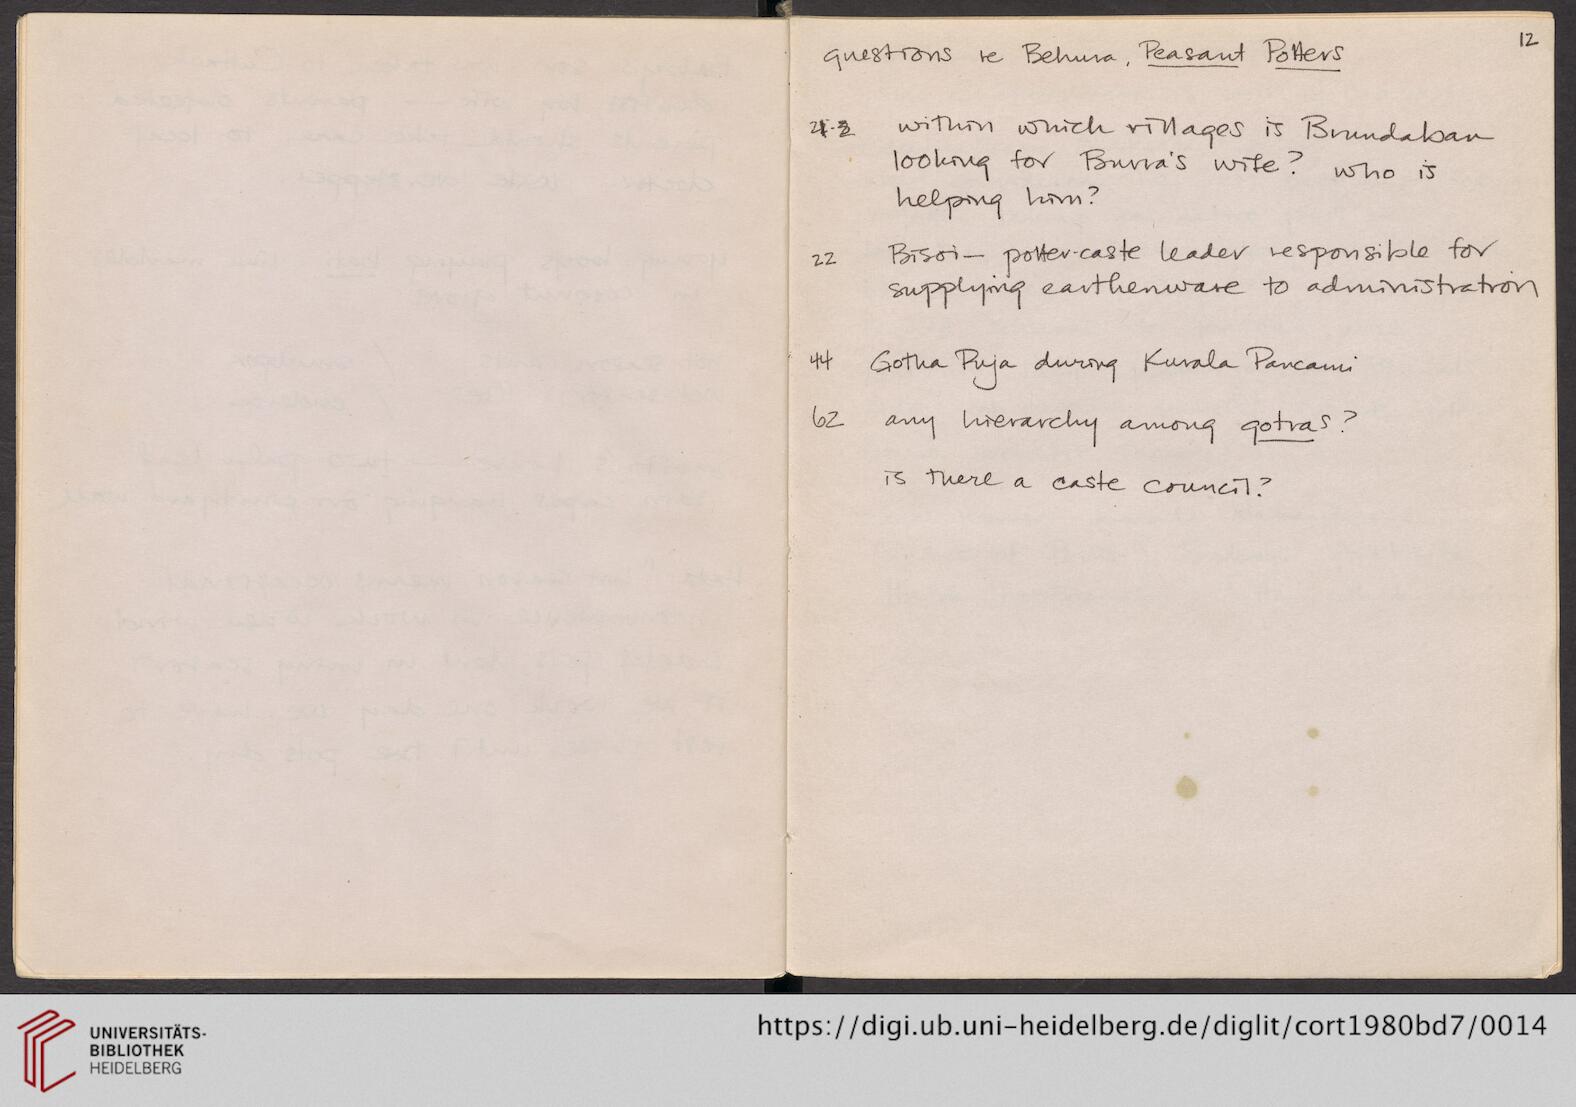 12
questions re Behura, Peasant Potters
21-2 within which villages is Brundaban
looking for Burra's wife? who is
helping him?
22 Bisoi— potter-caste leader responsible for
supplying earthenware to administration
44 Gotha Puja during Kurala Pancami
62 any hierarchy among gotras?
is there a caste council?
UNIVERSITÄTS-
BIBLIOTHEK
HEIDELBERG
https://digi.ub.uni-heidelberg.de/diglit/cort1980bd7/0014